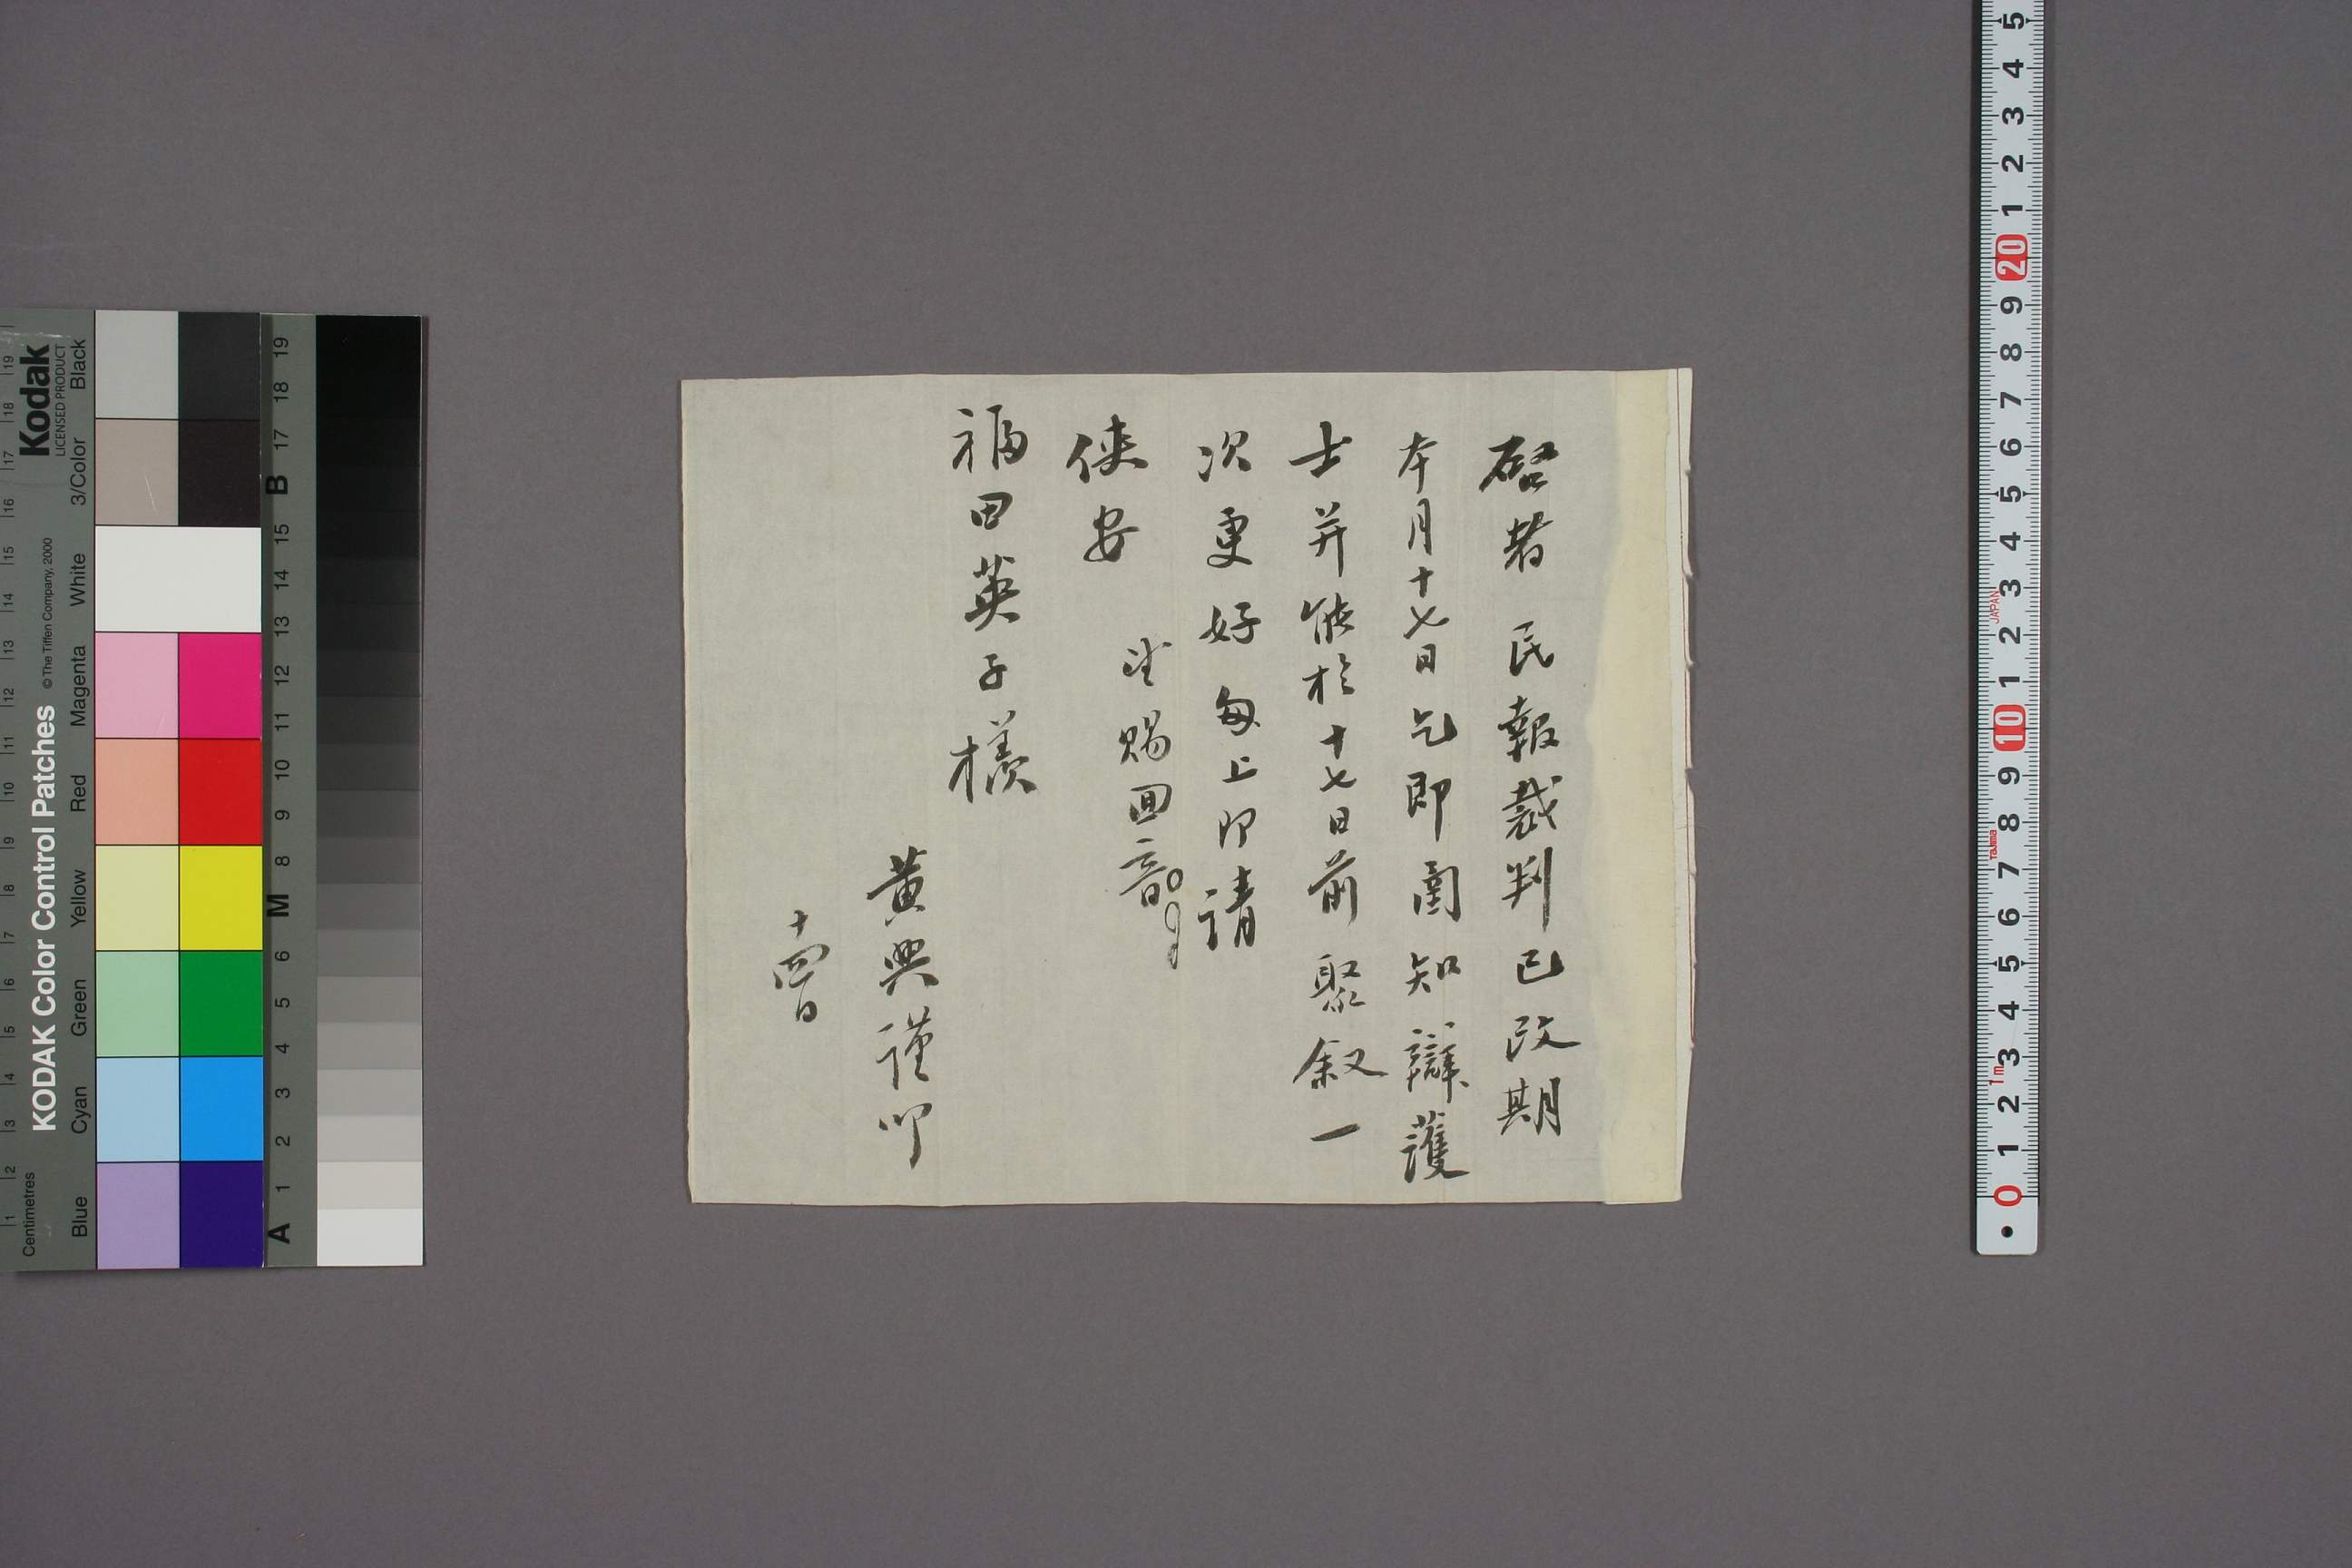 啓者 民報裁判已改期
本月十七日乞即圖知辯護
士并能於十七日前聚叙一
次更好匆上即請
俠安
望賜回音
福田英子様
黄興謹叩
十四日
Kodak
LICENSED PRODUCT
KODAK Color Control Patches
© The Tiffen Company, 2000
Centimetres
Blue
Cyan
Green
Yellow
Red
Magenta
White
3/Color
Black
1
2
3
4
5
6
7
8
9
10
11
12
13
14
15
16
17
18
19
A
1
2
3
4
5
6
M
8
9
10
11
12
13
14
15
B
17
18
19
5
4
3
2
1
20
9
8
7
6
5
4
3
2
1
10
9
8
7
6
5
4
3
2
1
0
JAPAN
Tajima
1m